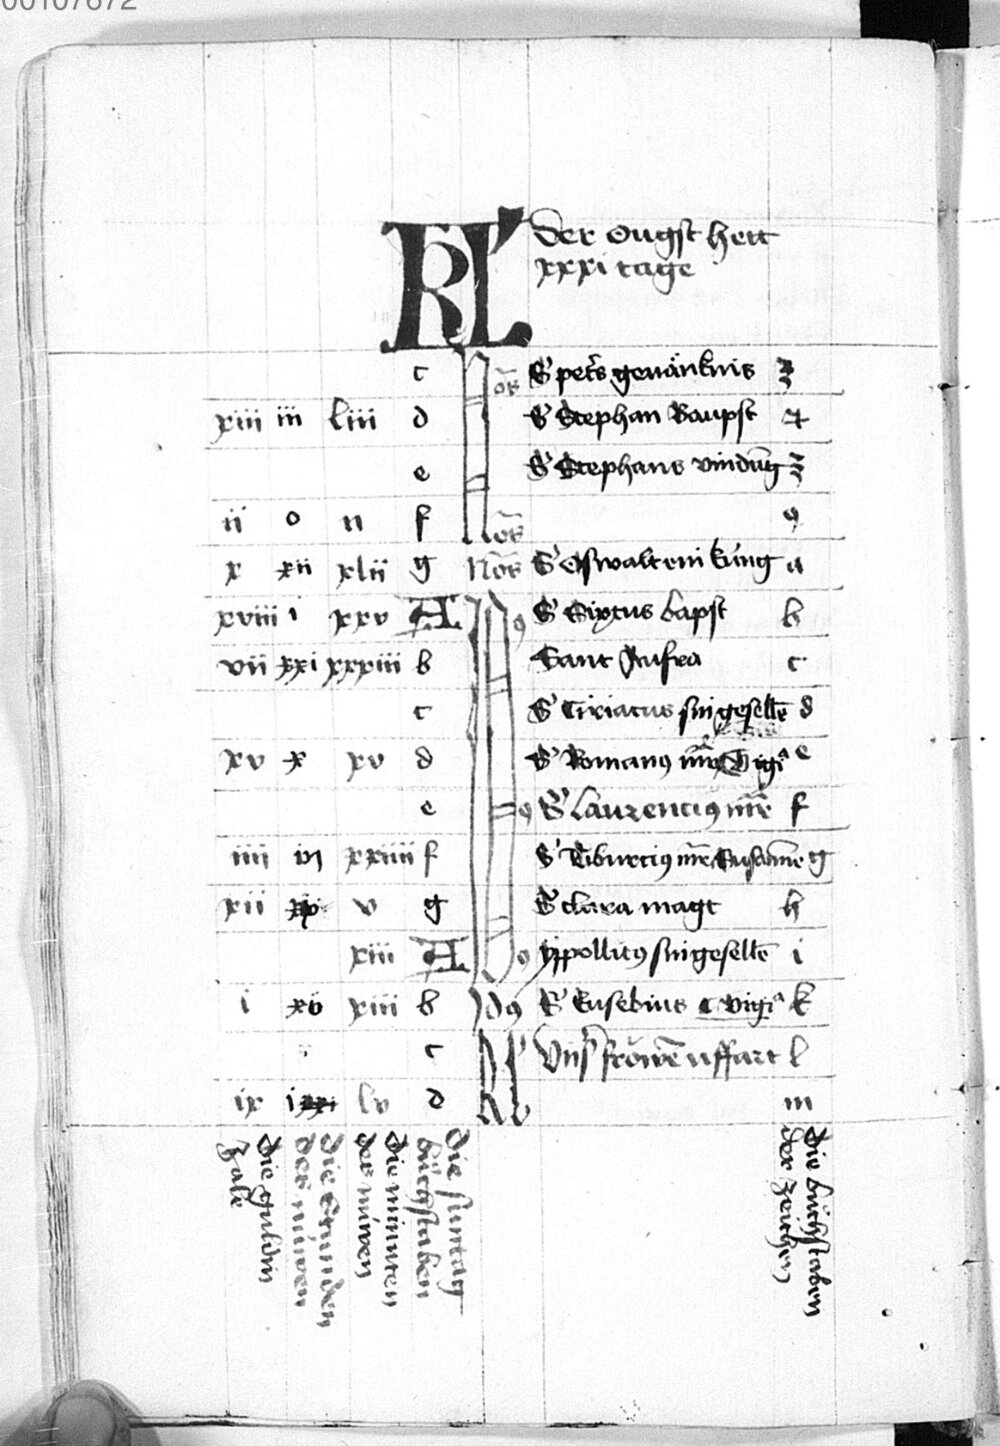 00107672
KL der ougst hett
xxxi tage
c S peters genänknis z
xiii iii liii d S Stephan Baupst
e S Stephans vindung
ii o n f 9
x xii xlii g Nōs S Oswalt ein küng a
xviii i xxv A S Sixtus bapst b
vii xxi xxxiii b Sant Aufra c
c S Ciriacus sin geselle d
xv x xv d S Romanus Vigia e
e S Laurencius mre f
iiii vi xxiiii f S Tiburcius mre Susanne g
xii v g S clara magt h
xiii A yppollitus sin geselle i
i xv xiii b Idus S Eusebius vigia k
c Kl Vnser frowen uffart l
ix i lv d m
die guldin
zale
die Stunden
des nüwen
die minuten
des nüwen
die suntag
buchstaben
die buchstaben
der zeichen